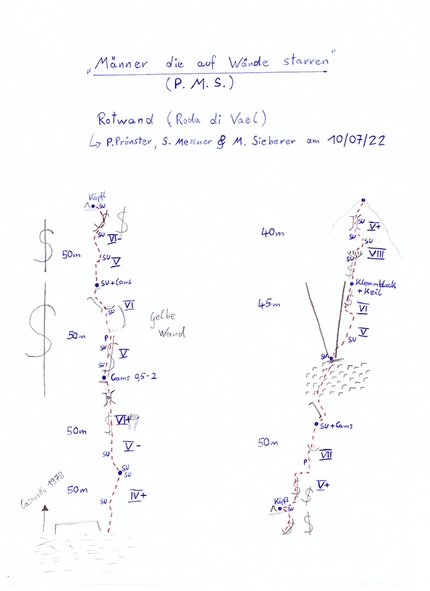 „Männer die auf Wände starren"
(P. M. S.)
Rotwand (Roda di Vael)
↳ P. Prünster, S. Messner & M. Sieberer am 10/07/22
Köpfl
SU
SU
VI-
50m
SU
V
SU + Cams
SU
VI
Gelbe
Wand
50m
P
SU
V
SU
Cams 0,5-2
VI+
50m
V-
SU
SU
SU
50m
SU
IV+
1978
40m
SU
V+
SU
SU
VIII
Klemmblock
+ Keil
45m
VI
SU
V
SU
SU + Cams
50m
VII
P
V+
Köpfl
SU